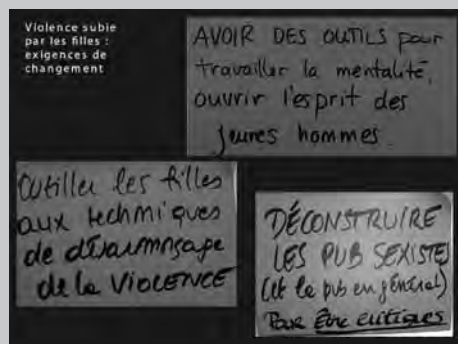 Violence subie
par les filles :
exigences de
changement
AVOIR DES OUTILS pour
travailler la mentalité,
ouvrir l'esprit des
jeunes hommes.
Outiller les filles
aux techniques
de désarmorçage
de la VIOLENCE
DÉCONSTRUIRE
LES PUB SEXISTES
(et la pub en général)
Pour Être critiques